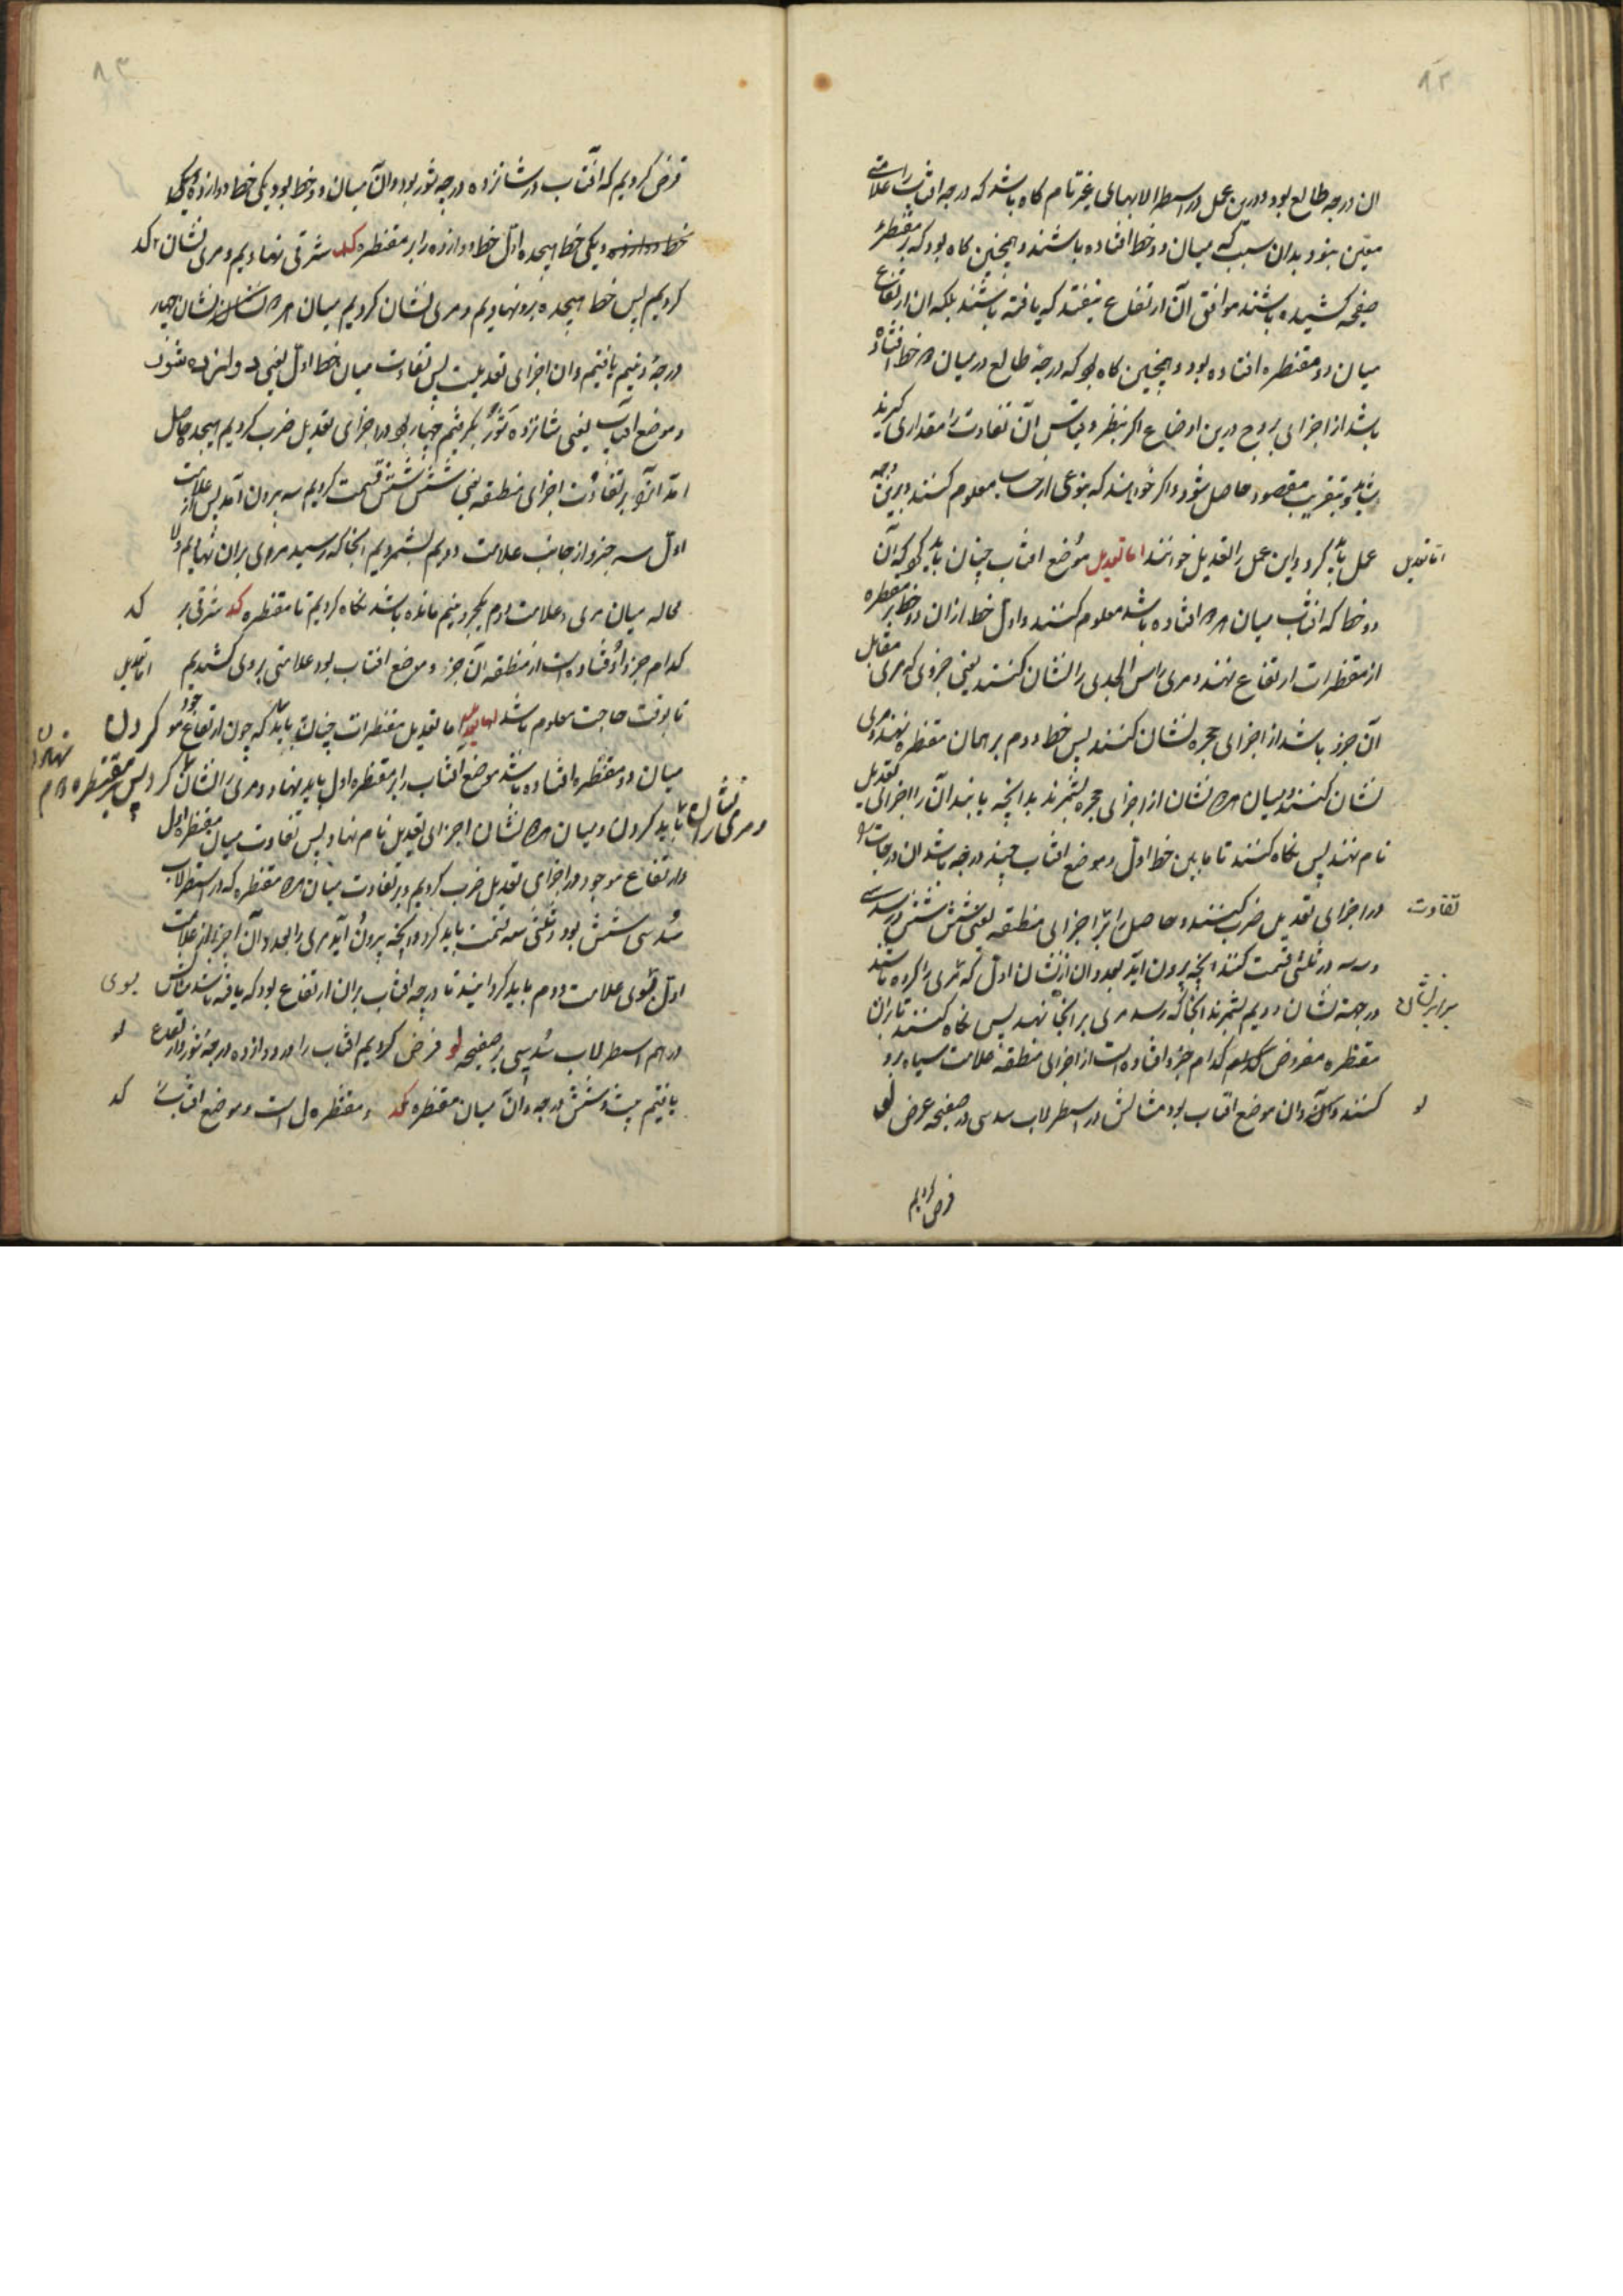 ۸۲
ان درجه طالع بود و درین عمل در اسطرلابهای غیر تام گاه باشد که درجه افتاب را علامتی
معین نبود بدان سبب که میان دو خط افتاده باشند و همچنین گاه بود که بر مقنطرهٔ
صفیحه کشیده باشند موافق آن ارتفاع نیفتد که یافته باشند بلکه ان ارتفاع
میان دو مقنطره افتاده بود و همچنین گاه بود که درجهٔ طالع در میان دو خط افتاده
باشد از اجزای بروج درین اوضاع اگر بنظر و قیاس آن تفاوت را مقداری گیرند
شاید و بتقریب مقصود حاصل شود و اگر خواهند که بنوعی از حساب معلوم کنند برین وجه
عمل باید کرد و این عمل را تعدیل خوانند اما تعدیل موضع افتاب چنان باید کرد که آن
اما تعدیل
دو خط که افتاب میان هر دو افتاده باشد معلوم کنند و اول خط از ان دو خط بر مقنطره
از مقنطرات ارتفاع نهند و مری راس الجدی را نشان کنند یعنی جزوی که مری مقابل
آن جزو باشد از اجزای حجره نشان کنند پس خط دوم بر همان مقنطره نهند و مری
نشان کنند و میان هر دو نشان از اجزای حجره بشمرند بدانچه یابند آن را اجزای تعدیل
نام نهند پس نگاه کنند تا مابین خط اول و موضع افتاب چند درجه باشد ان درجات را
در اجزای تعدیل ضرب کنند و حاصل را بر اجزای منطقه یعنی شش شش در سدسی
تفاوت
و سه سه در ثلثی قسمت کنند انچه بیرون اید بعدد ان از نشان اول که مری را کرده باشند
در جهة نشان دویم بشمرند انجا که رسد مری بر انجا نهند پس نگاه کنند تا بران
برابر نشان
مقنطره مفروض کدام جزو افتاده است از اجزای منطقه علامت سیاه برو
کنند و ان موضع افتاب بود مثالش در اسطرلاب سدسی در صفیحه عرض لو
لو
فرض کردیم
۸۳
فرض کردیم که آفتاب در شانزده درجه ثور بود و آن میان دو خط بود یکی خط دوازده و یکی
خط دوازده و یکی خط هیجده اول خط دوازده را بر مقنطره کد شرقی نهادیم و مری نشان کد
کردیم پس خط هیجده برو نهادیم و مری نشان کردیم میان هر دو نشان چهار
درجه و نیم یافتیم و ان اجزای تعدیلست پس تفاوت میان خط اول یعنی دوازده ثور
و موضع افتاب یعنی شانزده ثور بگرفتیم چهار بود در اجزای تعدیل ضرب کردیم هیجده حاصل
امد انرا بر تفاوت اجزای منطقه یعنی شش شش قسمت کردیم سه بیرون امد پس از علامت
اول سه جزو از جانب علامت دویم بشمردیم انجا که رسید مری بران نهادیم و لا
محاله میان مری و علامت دوم یکجزو و نیم مانده باشد نگاه کردیم تا مقنطره کد شرقی بر
کد
کدام جزو افتاده است از منطقه آن جزو موضع افتاب بود علامتی بروی کشیدیم
اما تعدیل
تا بوقت حاجت معلوم باشد اما تعدیل مقنطرات چنان باید که چون ارتفاع موجود
میان دو مقنطره افتاده باشد موضع آفتاب را بر مقنطره اول باید نهاد و مری را نشان کردن پس بر مقنطره دوم نهادن
و مری را نشان باید کردن و میان هر دو نشان اجزای تعدیل نام نهاد پس تفاوت میان مقنطره اول
و ارتفاع موجود در اجزای تعدیل ضرب کردیم و بر تفاوت میان هر دو مقنطره که در اسطرلاب
سدسی شش بود و ثلثی سه قسمت باید کرد و انچه بیرون آید مری را بعدد آن اجزا از علامت
اول بسوی علامت دوم باید گردانید تا درجه افتاب بران ارتفاع بود که یافته باشد مثالش
بسوی
در هم اسطرلاب سدسی بر صفیحه لو فرض کردیم افتاب را در دوازده درجه ثور و ارتفاع
لو
یافتیم بیست و شش درجه و آن میان مقنطره کد و مقنطره ل است و موضع افتاب
کد